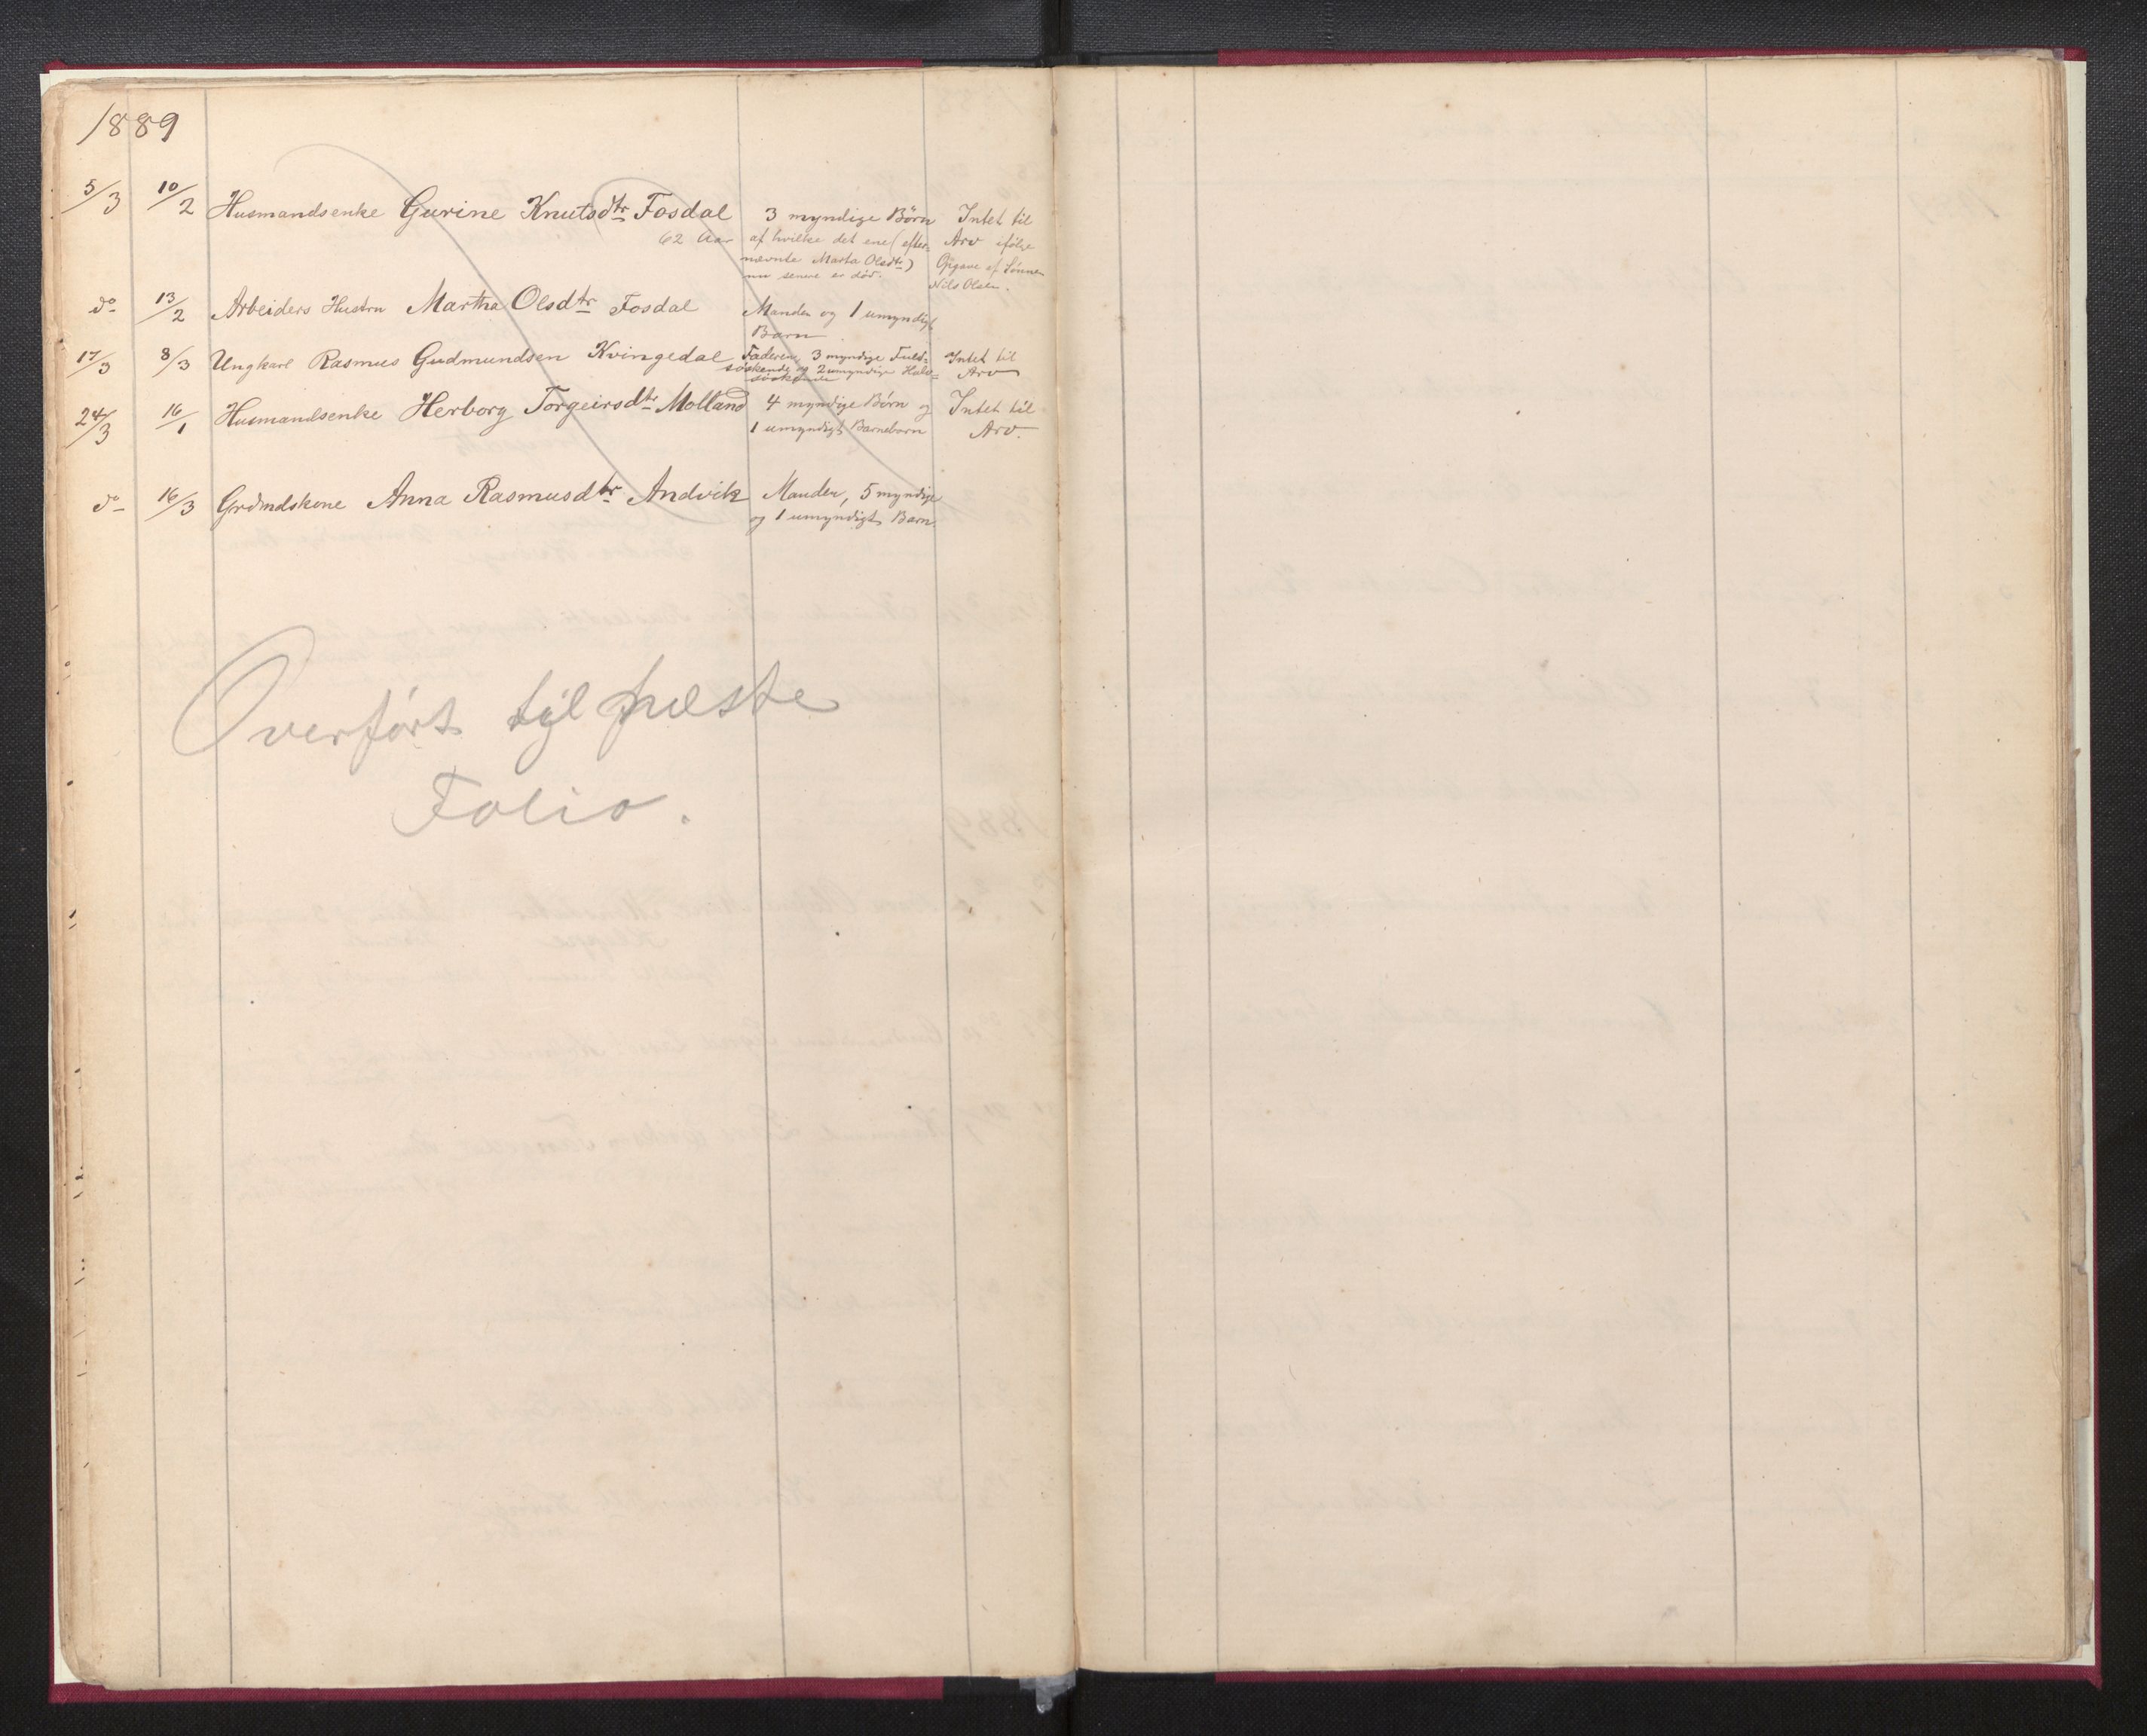 1889
5/3 10/2 Husmandsenke Gurine Knutsdtr Fosdal 3 myndige Børn Intet til
62 Aar af hvilke det ene (efter= Arv ifølge
nævnte Marta Olsdtr) Opgave af Sønnen
nu senere er død. Nils Olsen.
do 13/2 Arbeiders Hustru Martha Olsdtr Fosdal Manden og 1 umyndigt
Barn
17/3 8/3 Ungkarl Rasmus Gudmundsen Kvingedal Faderen, 3 myndige Fuld= Intet til
søskende og 2 umyndige Halv= Arv
søskende
24/3 16/1 Husmandsenke Herborg Torgeirsdtr Molland 4 myndige Børn og Intet til
1 umyndigt Barnebarn Arv.
do 16/3 Grdmdskone Anna Rasmusdtr Andvik Manden, 5 myndige
og 1 umyndigt Barn.
Overført til næste
Folio.